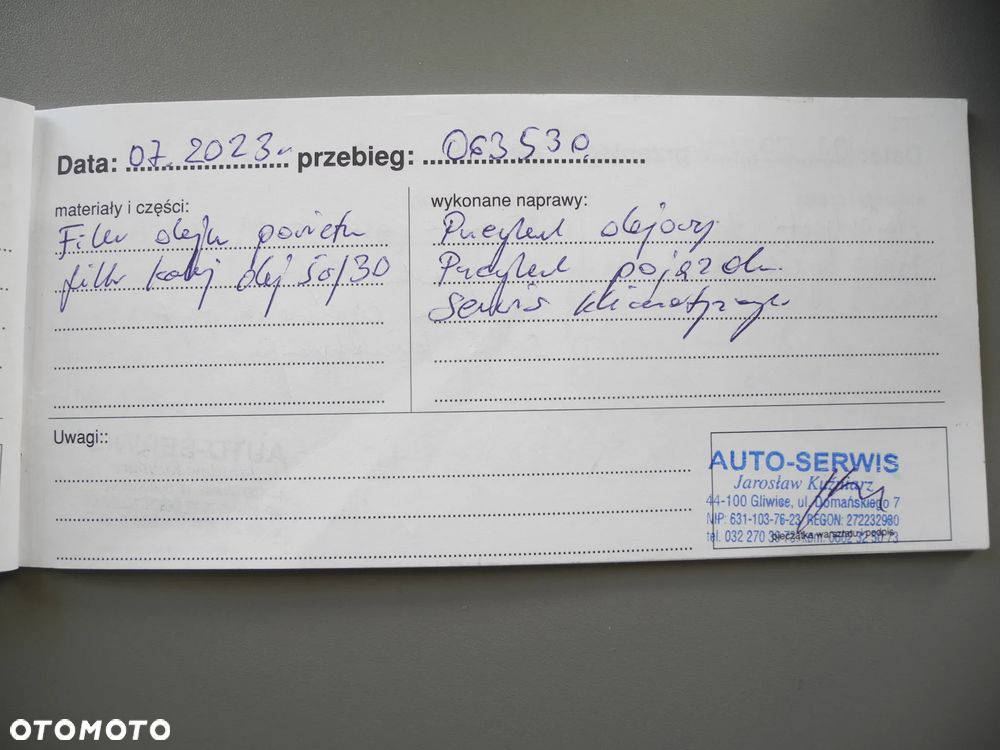 Data: 07.2023r przebieg: 063530
materiały i części:
Filtr oleju powietrza
filtr kabij olej 50/30
wykonane naprawy:
Przegląd olejowy
Przegląd pojazdu
Serwis klimatyzacji
Uwagi::
AUTO-SERWIS
Jarosław Kuźniarz
44-100 Gliwice, ul. Domańskiego 7
NIP: 631-103-76-23 REGON: 272232980
tel. 032 270
pieczątka warsztatu i podpis
OTOMOTO